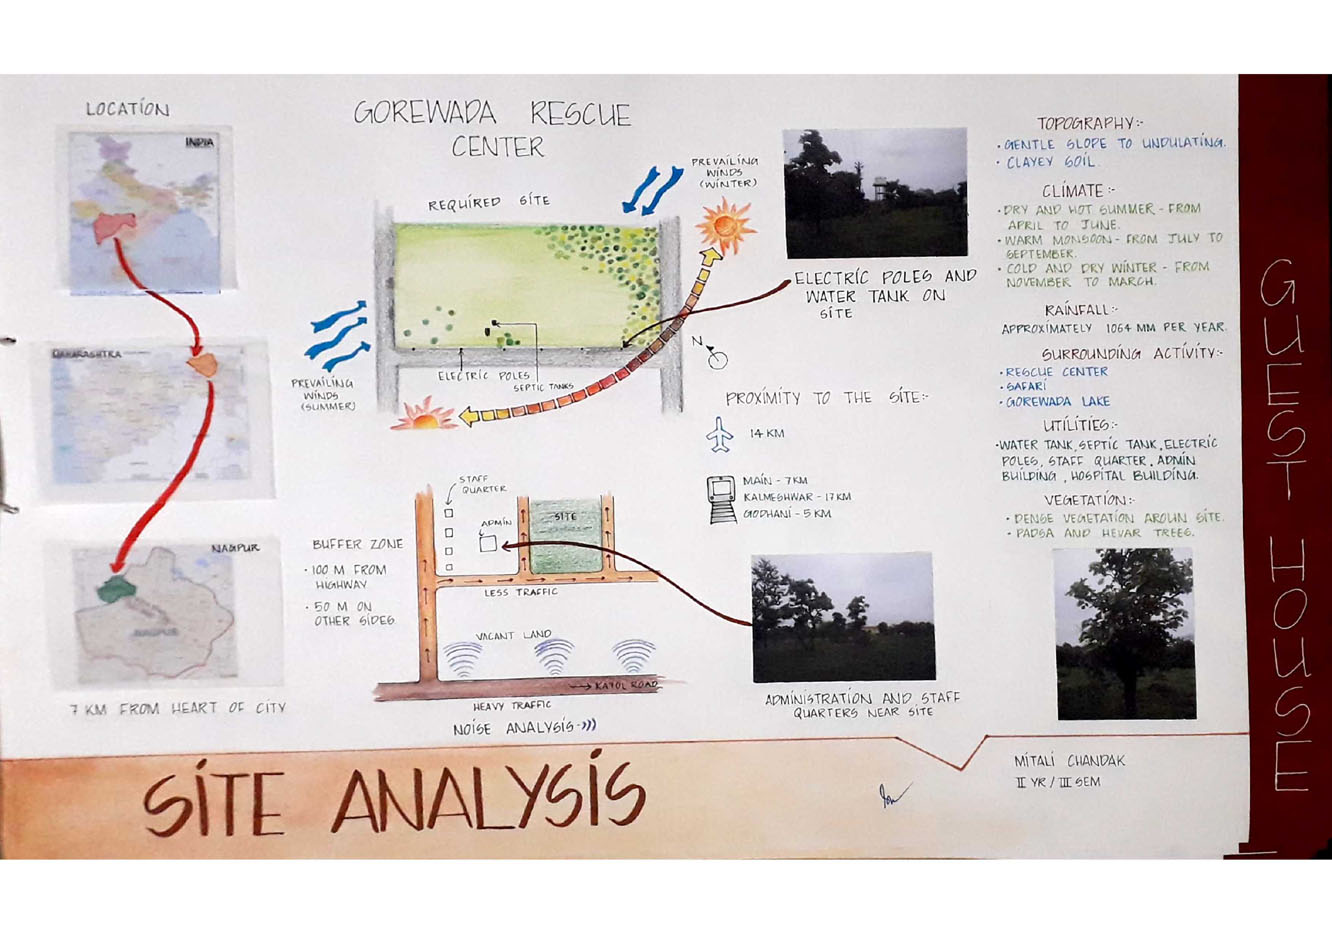 LOCATION
INDIA
MAHARASHTRA
NAGPUR
NAGPUR
7 KM FROM HEART OF CITY
GOREWADA RESCUE
CENTER
REQUIRED SITE
PREVAILING
WINDS
(WINTER)
PREVAILING
WINDS
(SUMMER)
ELECTRIC POLES
SEPTIC TANKS
N
ELECTRIC POLES AND
WATER TANK ON
SITE
PROXIMITY TO THE SITE:-
14 KM
MAIN - 7KM
KALMESHWAR - 17KM
GODHANI - 5 KM
BUFFER ZONE
• 100 M FROM
HIGHWAY
• 50 M ON
OTHER SIDES
STAFF
QUARTER
ADMIN
SITE
LESS TRAFFIC
VACANT LAND
→ KATOL ROAD
HEAVY TRAFFIC
NOISE ANALYSIS-)))
ADMINISTRATION AND STAFF
QUARTERS NEAR SITE
TOPOGRAPHY:-
• GENTLE SLOPE TO UNDULATING.
• CLAYEY SOIL.
CLIMATE:-
• DRY AND HOT SUMMER - FROM
APRIL TO JUNE.
• WARM MONSOON - FROM JULY TO
SEPTEMBER.
• COLD AND DRY WINTER - FROM
NOVEMBER TO MARCH.
RAINFALL:-
APPROXIMATELY 1064 MM PER YEAR.
SURROUNDING ACTIVITY:-
• RESCUE CENTER
• SAFARI
• GOREWADA LAKE
UTILITIES:-
• WATER TANK, SEPTIC TANK, ELECTRIC
POLES, STAFF QUARTER, ADMIN
BUILDING, HOSPITAL BUILDING.
VEGETATION:-
• DENSE VEGETATION AROUN SITE.
• PADSA AND HEVAR TREES.
SITE ANALYSIS
MITALI CHANDAK
II YR / III SEM
GUEST HOUSE